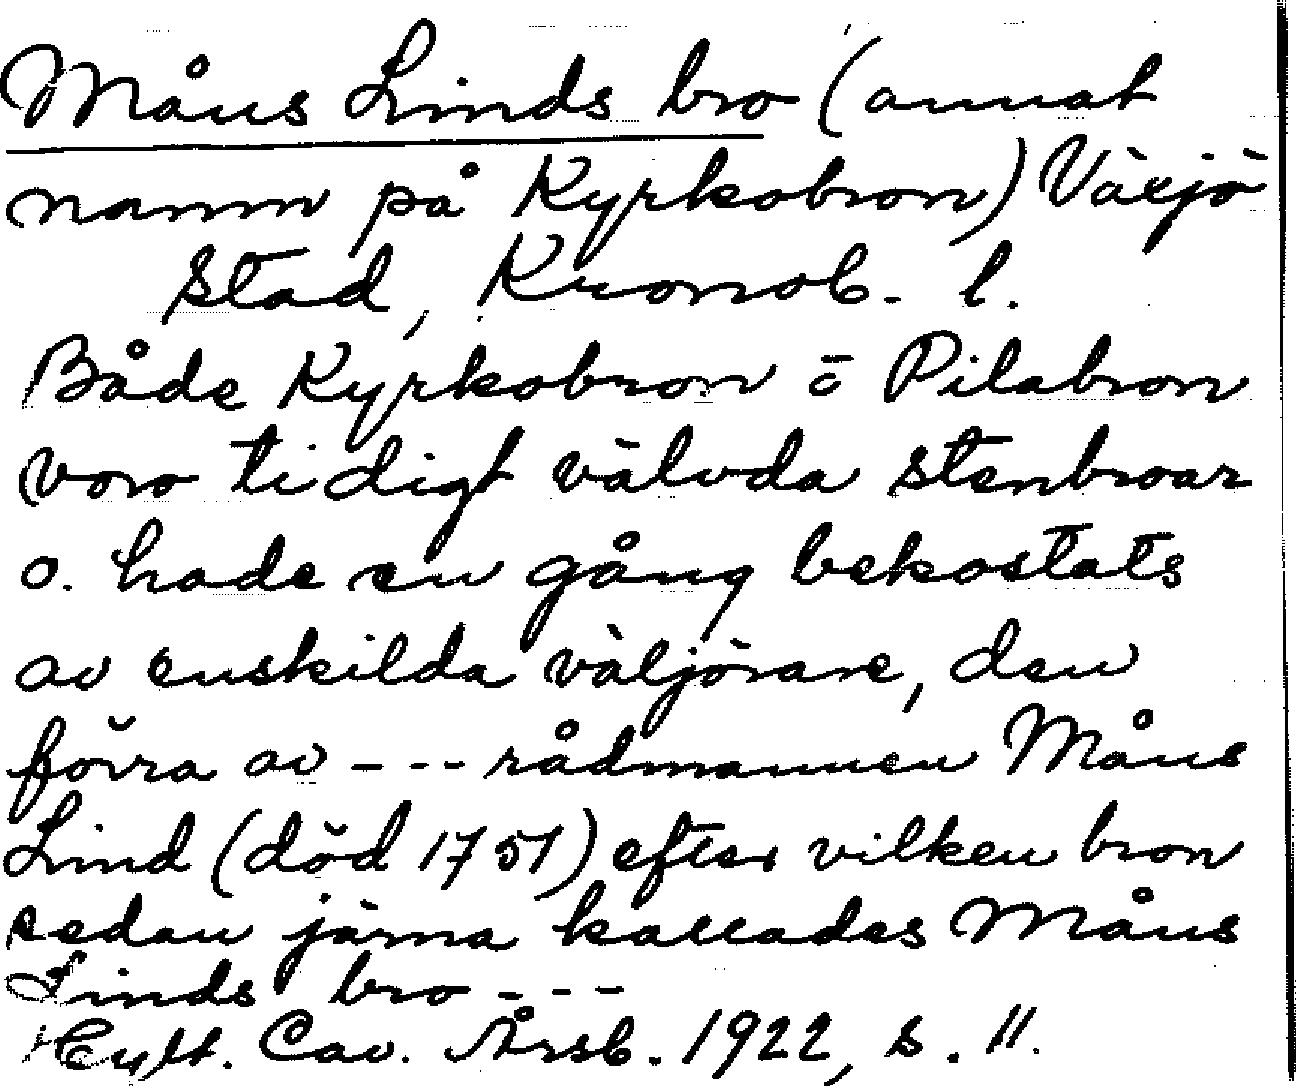 Måns Linds bro (annat
namn på Kyrkobron) Växjö
stad, Kronob. l.
Både Kyrkobron o Pilabron
voro tidigt välvda stenbroar
o. hade en gång bekostats
av enskilda väljörare, den
förra av --- rådmannen Måns
Lind (död 1751) efter vilken bron
sedan järna kallades Måns
Linds bro ---
Hylt. Cav. Årsb. 1922, s. 11.